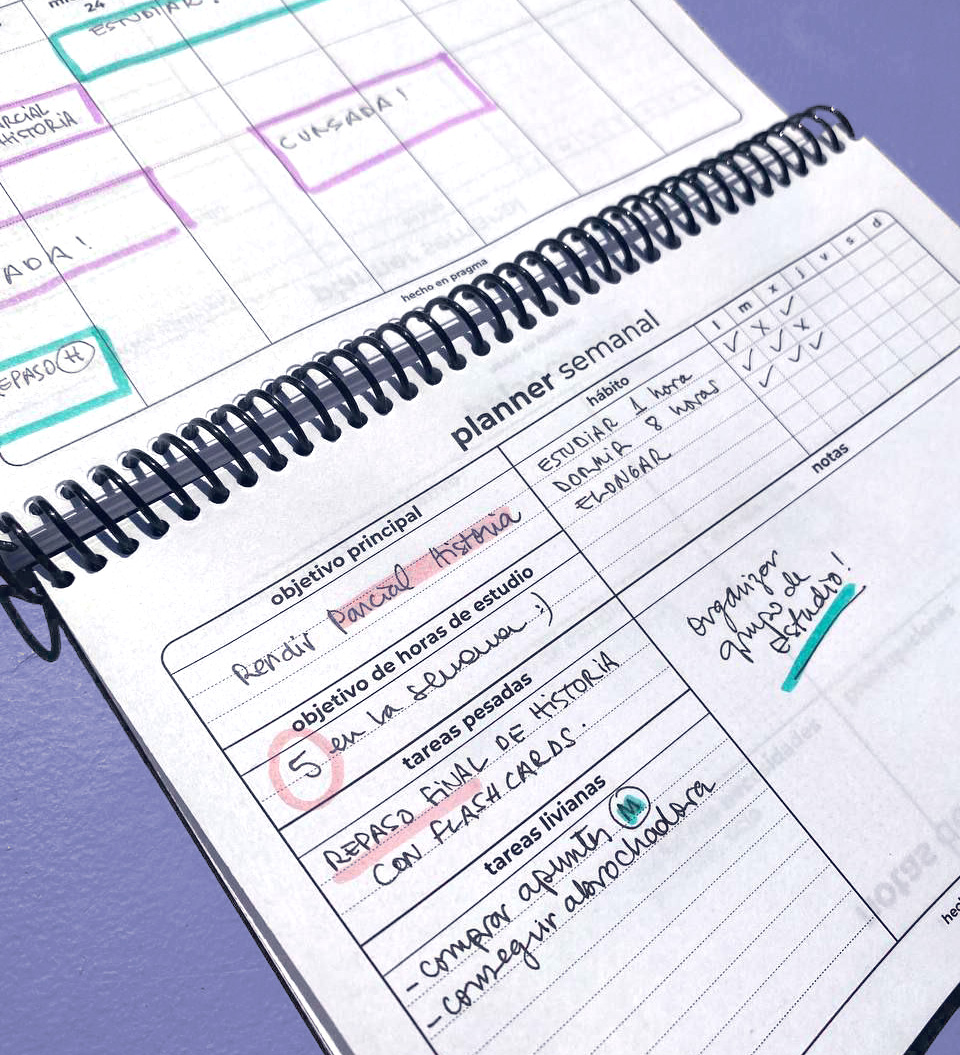 24
ESTUDIAR!
HISTORIA
CURSADA!
ADA!
EPASO H
hecho en pragma
planner semanal
objetivo principal
Rendir Parcial Historia
objetivo de horas de estudio
5 en la semana :)
tareas pesadas
REPASO FINAL DE HISTORIA
CON FLASH CARDS.
tareas livianas
- comprar apuntes M
- conseguir abrochadora
hábito
l m x j v s d
ESTUDIAR 1 hora ✓ x ✓
DORMIR 8 horas ✓ ✓ x
ELONGAR ✓ ✓ ✓
notas
organizar
grupo de
estudio!